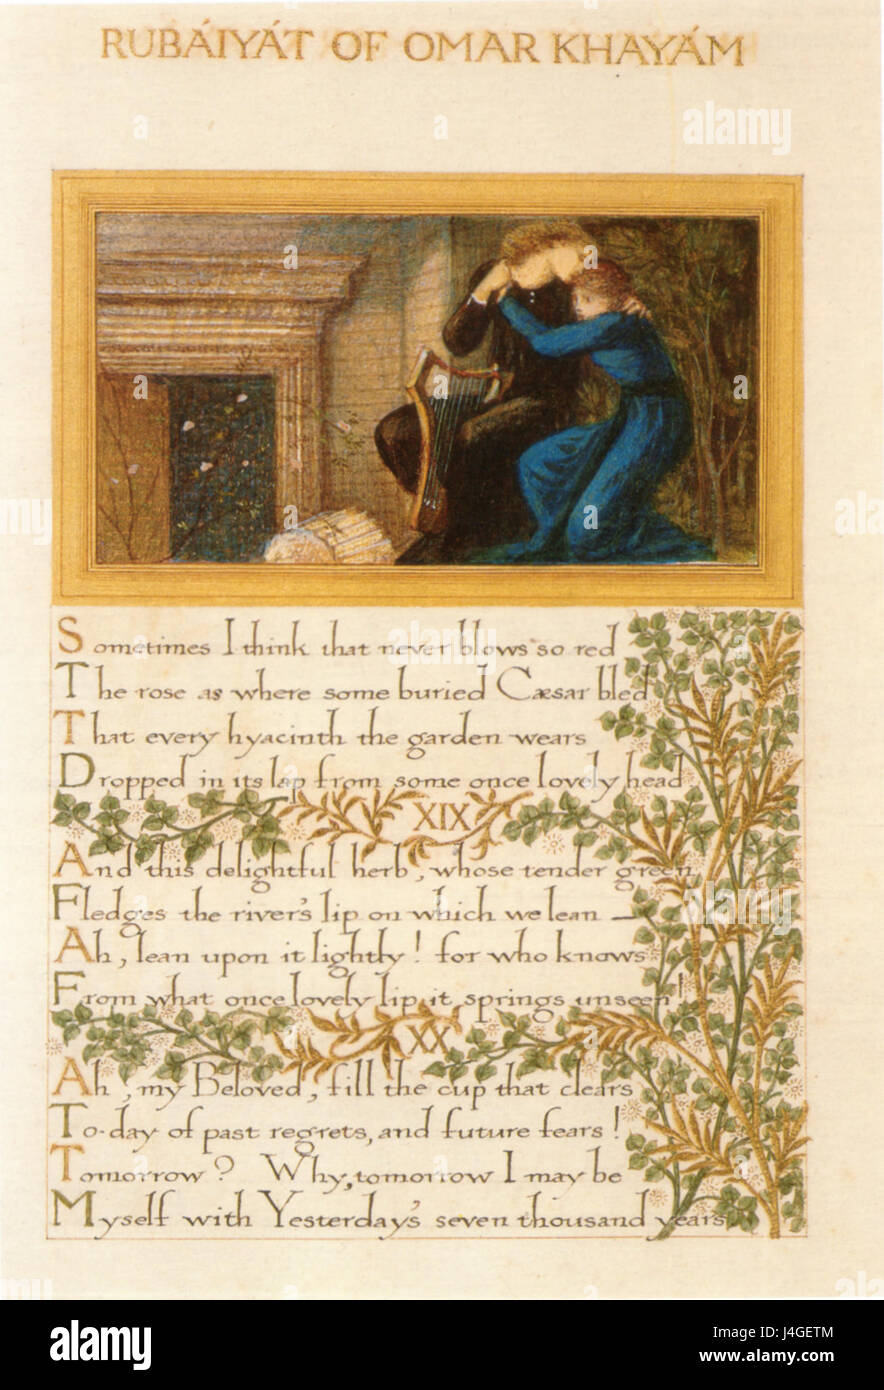 RUBÁIYÁT OF OMAR KHAYÁM
Sometimes I think that never blows so red
The rose as where some buried Cæsar bled
That every hyacinth the garden wears
Dropped in its lap from some once lovely head
XIX
And this delightful herb, whose tender green
Fledges the river's lip on which we lean —
Ah, lean upon it lightly! for who knows
From what once lovely lip it springs unseen!
XX
Ah, my Beloved, fill the cup that clears
To-day of past regrets, and future fears!
Tomorrow? Why, tomorrow I may be
Myself with Yesterday's seven thousand years
alamy
a
alamy stock photo
J4GETM
www.alamy.com